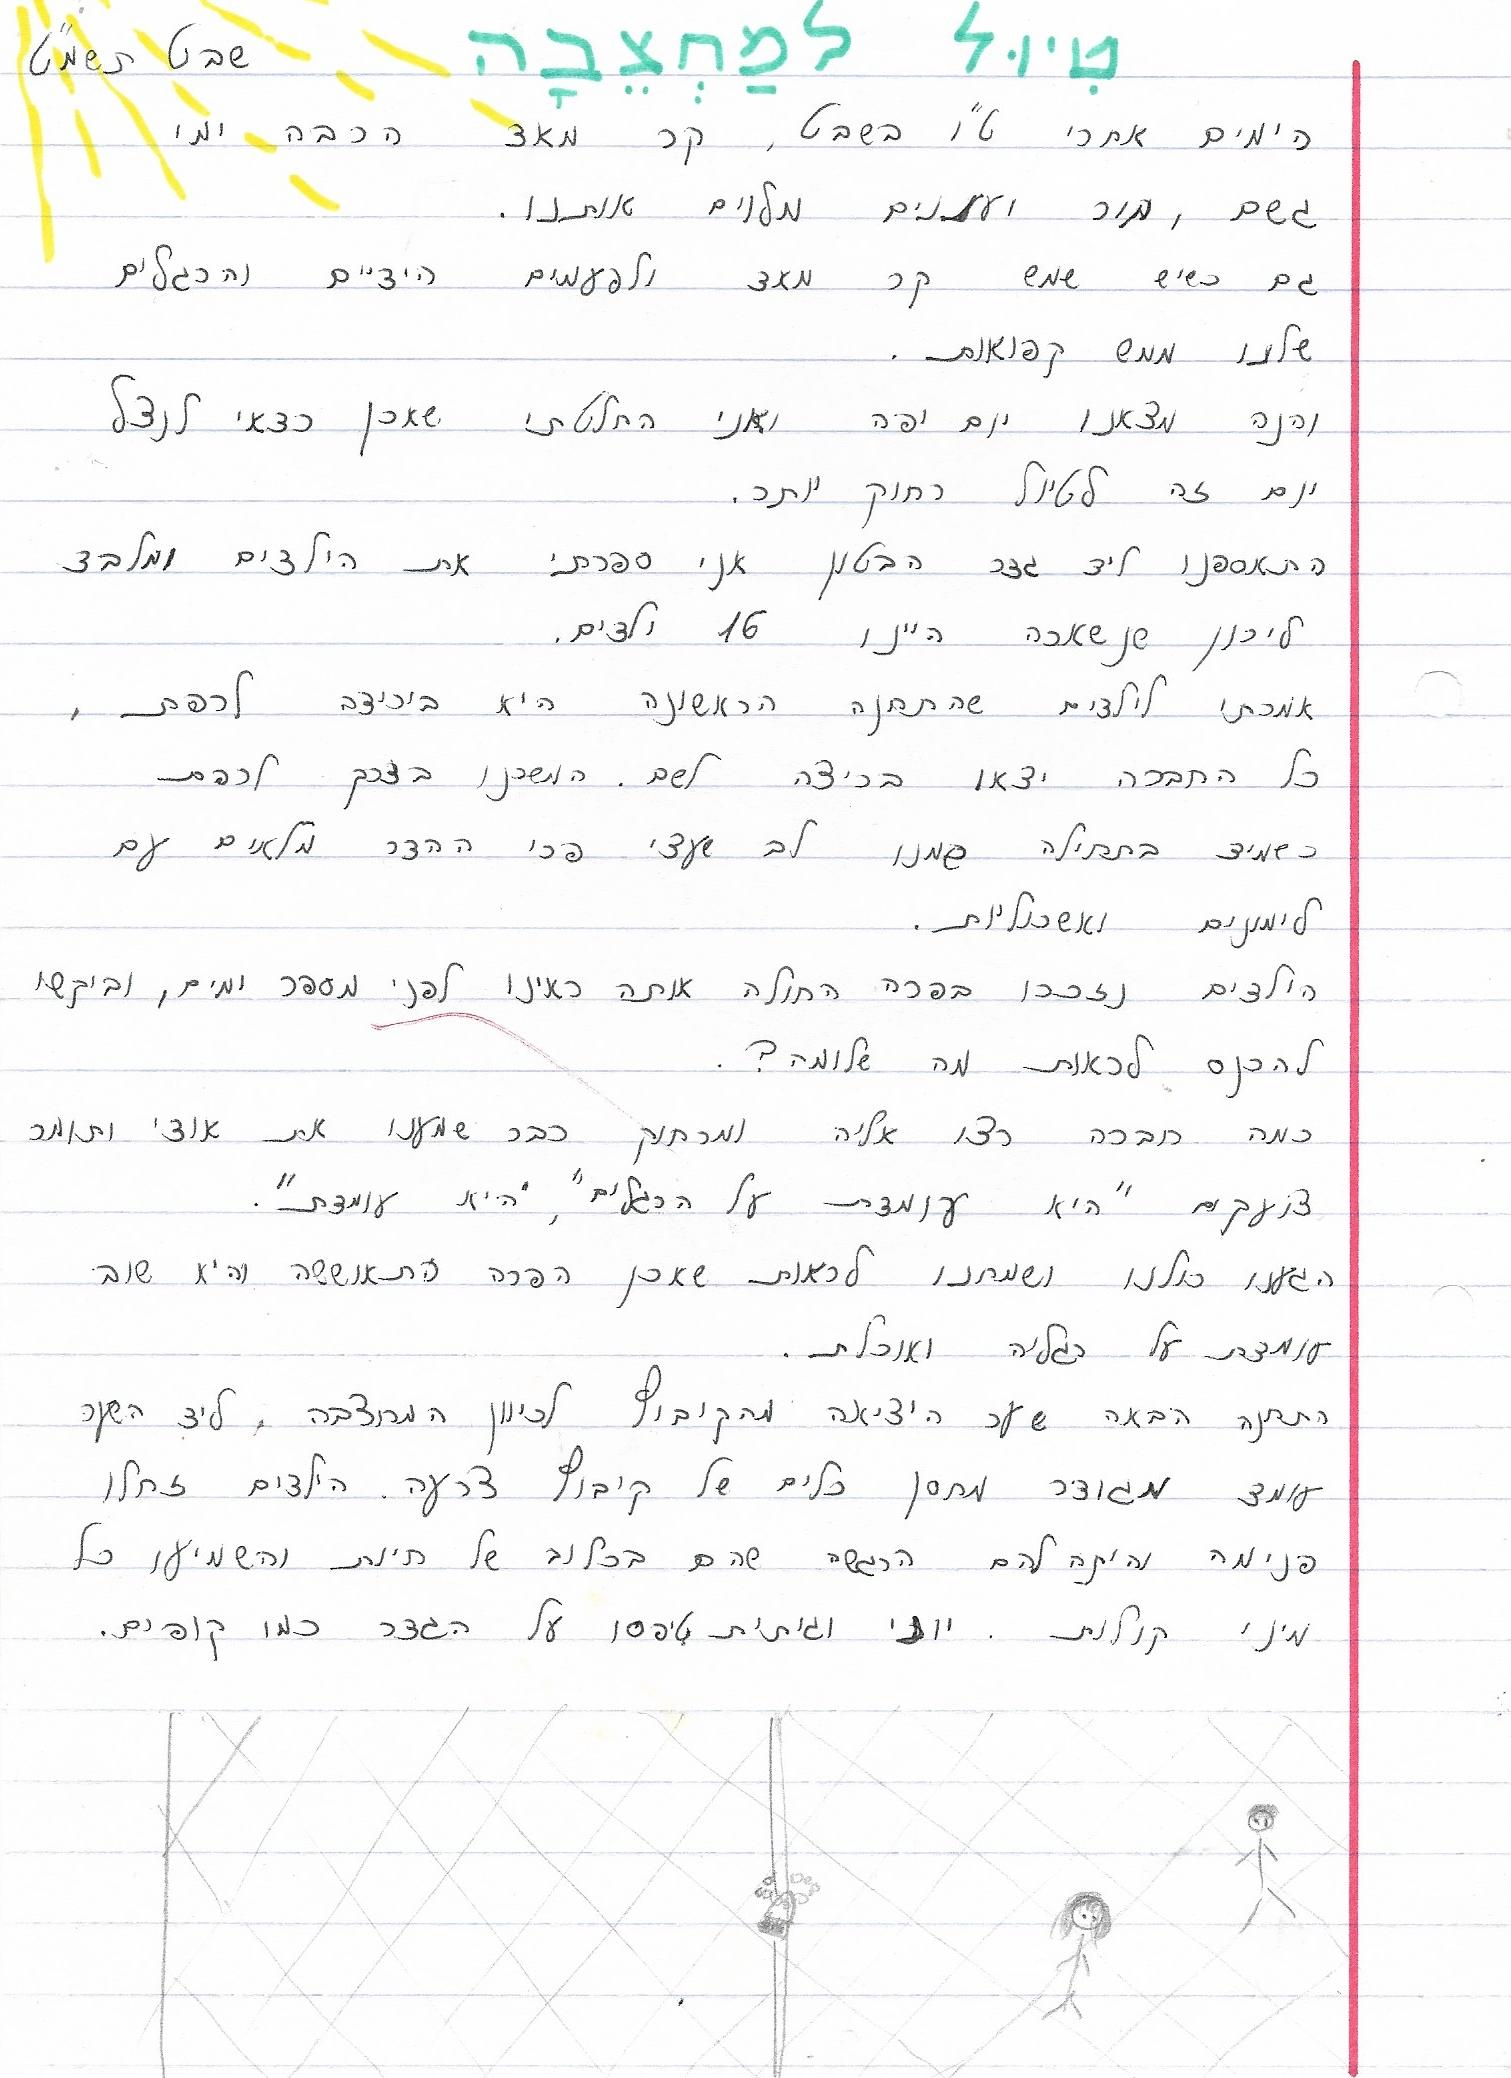 טִיוּל לַמַּחְצֵבָה שבט תשמ"ט
הימים אחרי ט"ו בשבט, קר מאד הרבה ימי
גשם, קור ועננים מלוים אותנו.
גם כשיש שמש קר מאד ולפעמים הידיים והרגלים
שלנו ממש קפואות.
והנה מצאנו יום יפה ואני החלטתי שאכן כדאי לנצל
יום זה לטיול רחוק יותר.
התאספנו ליד גדר הבטון אני ספרתי את הילדים ומלבד
לירון שנשארה היינו 16 ילדים.
אמרתי לילדים שהתחנה הראשונה היא בירידה לרפת,
כל החברה יצאו בריצה לשם. המשכנו בדרך לרפת
כשמיד בתחילה שמנו לב שעצי פרי ההדר מלאים עם
לימונים ואשכוליות.
הילדים נזכרו בפרה החולה אותה ראינו לפני מספר ימים, וביקשו
להכנס לראות מה שלומה?.
כמה חברה רצו אליה ומרחוק כבר שמענו את אודי ותומר
צועקים "היא עומדת על הרגלים", "היא עומדת".
הגענו כולנו ושמחנו לראות שאכן הפרה התאוששה והיא שוב
עומדת על רגליה ואוכלת.
התחנה הבאה שער היציאה מהקיבוץ לכיוון המחצבה, ליד השער
עומד מגודר מחסן כלים של קיבוץ צרעה. הילדים זחלו
פנימה והיתה להם הרגשה שהם בכלוב של חיות והשמיעו כל
מיני קולות. יותי וגיתית טיפסו על הגדר כמו קופים.